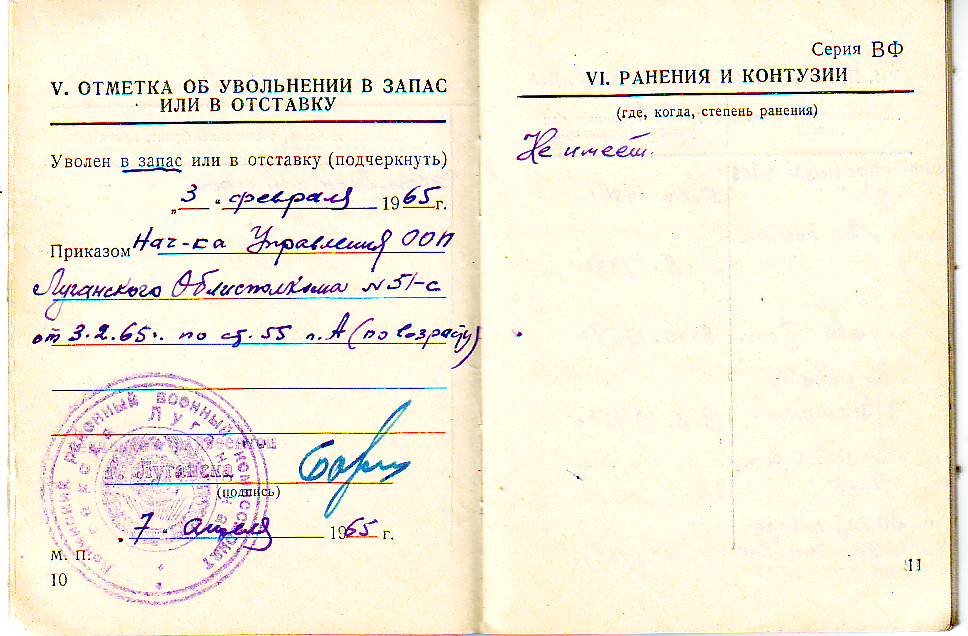 V. ОТМЕТКА ОБ УВОЛЬНЕНИИ В ЗАПАС
ИЛИ В ОТСТАВКУ
Уволен в запас или в отставку (подчеркнуть)
„3“ февраля 1965 г.
Приказом Нач-ка Управления ООП
Луганского Облисполкома №51-с
от 3.2.65г. по ст. 55 п. А (по возрасту)
районный военный комиссариат
г. Луганска
(подпись)
„7“ апреля 1965 г.
М. П.
10
Серия ВФ
VI. РАНЕНИЯ И КОНТУЗИИ
(где, когда, степень ранения)
Не имеет.
11